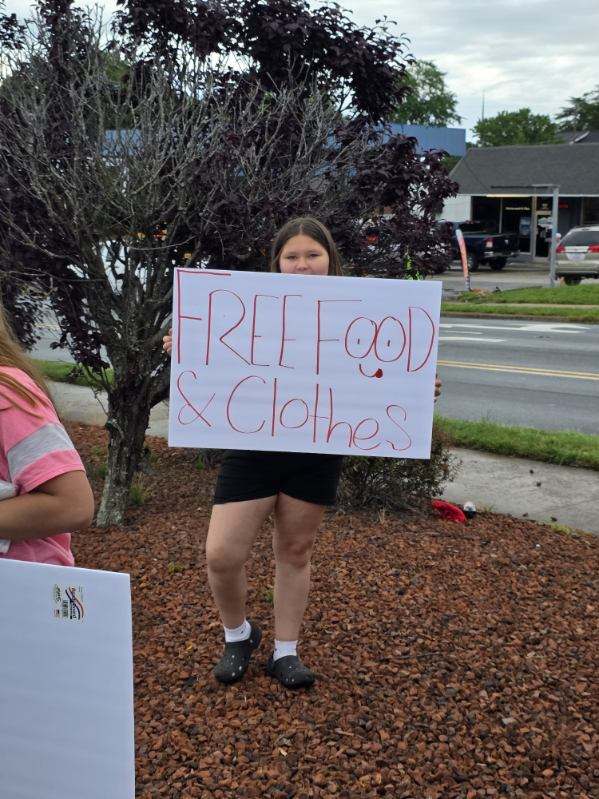 FREE FOOD
& Clothes